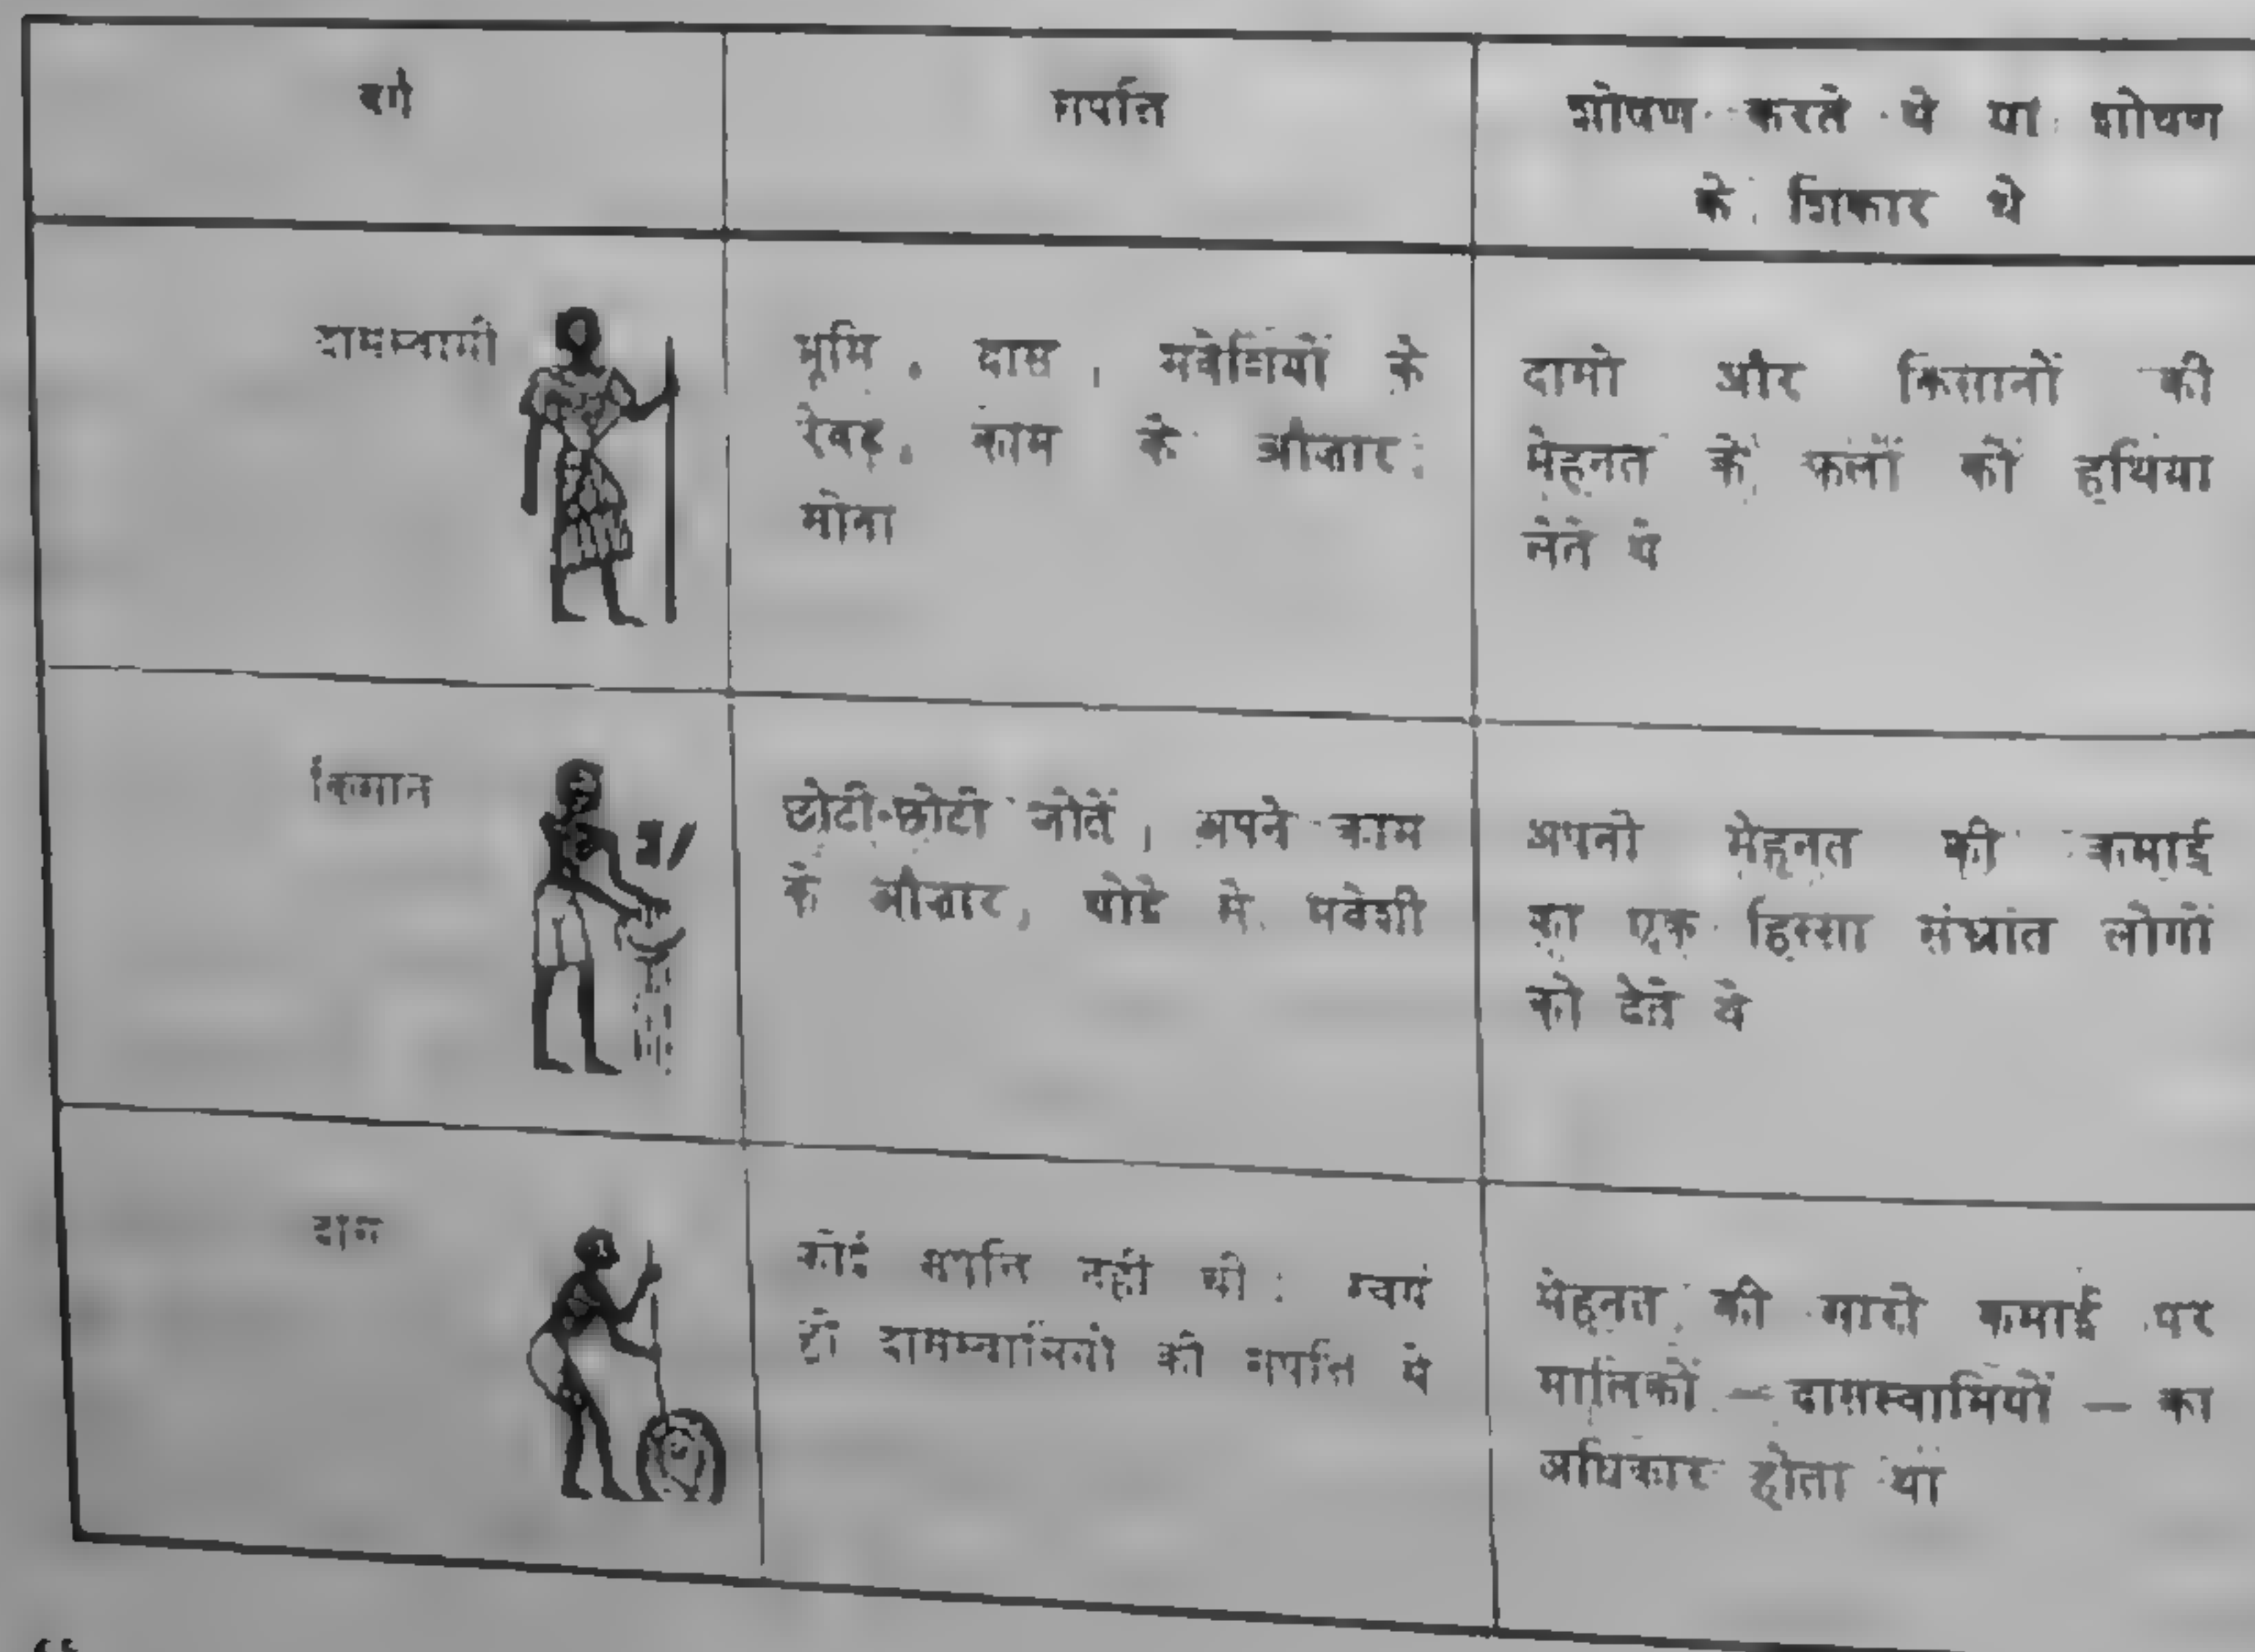 वर्ग
संपत्ति
शोषण करते थे या शोषण
के शिकार थे
दासस्वामी
भूमि, दास, मवेशियों के
रेवड़, काम के औज़ार,
सोना
दासों और किसानों की
मेहनत के फलों को हथिया
लेते थे
किसान
छोटी-छोटी जोतें, अपने काम
के औज़ार, थोड़े से मवेशी
अपनी मेहनत की कमाई
का एक हिस्सा संभ्रांत लोगों
को देते थे
दास
कोई संपत्ति नहीं थी; स्वयं
ही दासस्वामियों की संपत्ति थे
मेहनत की सारी कमाई पर
मालिकों – दासस्वामियों – का
अधिकार होता था